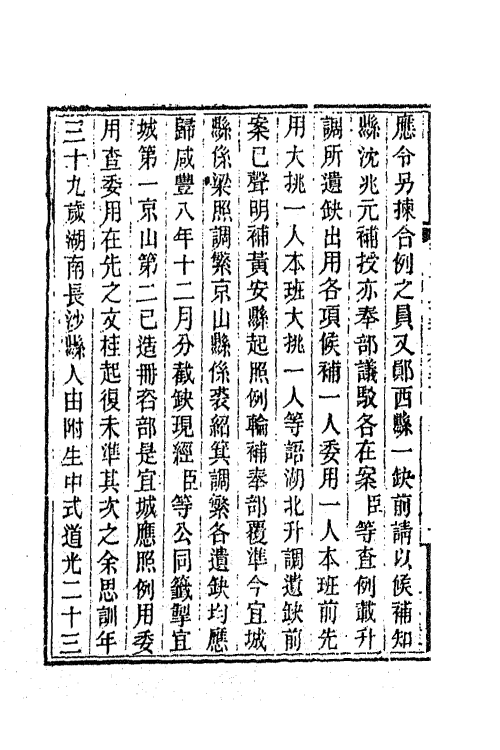 應令另揀合例之員又鄖西縣一缺前請以候補知
縣沈兆元補授亦奉部議駁各在案臣等查例載升
調所遺缺出用各項候補一人委用一人本班前先
用大挑一人本班大挑一人等語湖北升調遺缺前
案已聲明補黃安縣起照例輪補奉部覆準今宜城
縣係梁照調繁京山縣係裘紹箕調繁各遺缺均應
歸咸豐八年十二月分截缺現經臣等公同籤掣宜
城第一京山第二已造冊咨部是宜城應照例用委
用查委用在先之文桂起復未準其次之余思訓年
三十九歲湖南長沙縣人由附生中式道光二十三